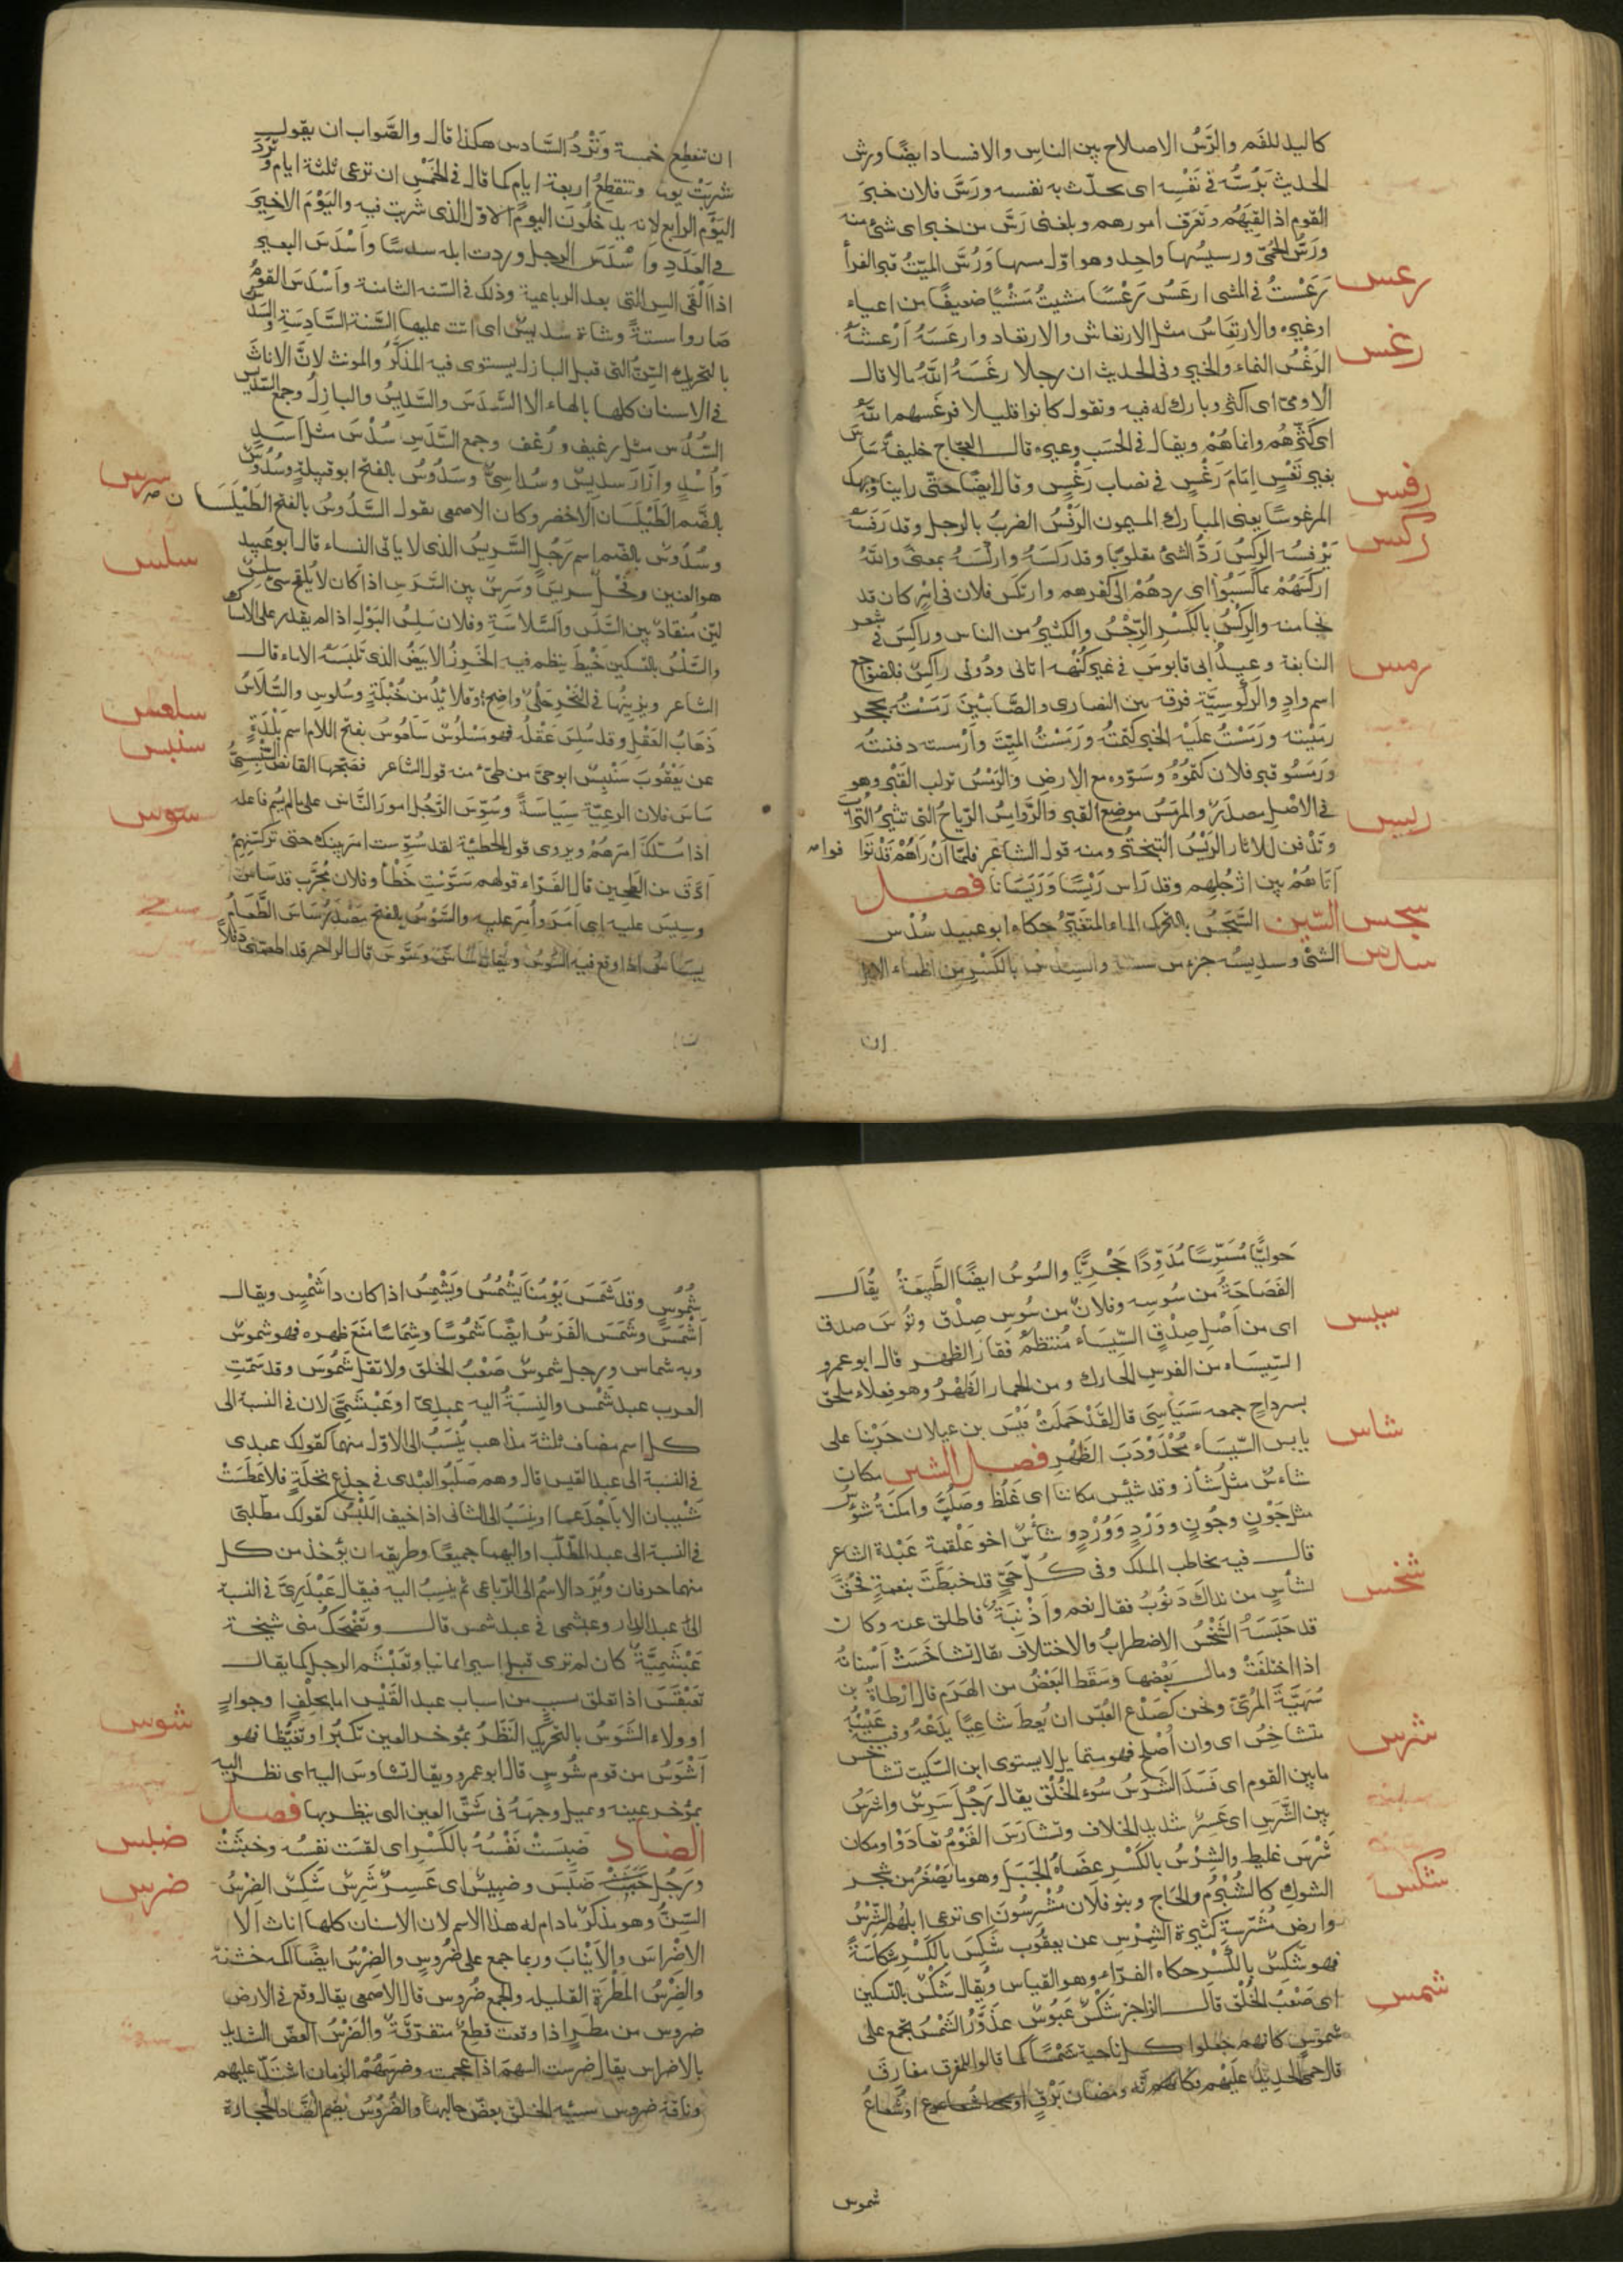 كاليد للفم والرَّسُّ الاصلاح بين الناس والافساد ايضًا ورسّ
الحديث يَرُسُّه في نَفْسِه اى يحدّث به نفسه ورَسَّ فلان خبرَ
القوم اذا لقِيَهُم وتعرّف امورهم وبلغنى رَسّ من خبر اى شئ منه
ورَسُّ الحُمّى ورسيسُها واحد وهو اوّل مسها ورُسَّ الميّتُ قبر الفرأ
رعس
رَعَسْتُ في المشى ارعَسُ رَعْسًا مشيتُ مَشْيًا ضعيفًا من اعياء
او غيره والارتِعَاسُ مثل الارتعاش والارتعاد وارعَسَهُ أرْعَشَهُ
رغس
الرَغْسُ النماء والخير وفى الحديث ان رجلا رغَسَهُ اللهُ مالا قال
الأُموىّ اى اكثر وبارك له فيه وتقول كانوا قليلا فرغسهم اللهُ
اى كثّرهُم وانماهُمْ ويقال في الحَسَب وغيره قال العجاج خليفةً سَاسَ
بغير تَعْسٍ اِمَامَ رَغْسٍ في نصاب رَغْسٍ وقال ايضًا حتّى راينا وجهك
رفس
المرغوسًا يعنى المبارك الميمون الرَفْسُ الضربُ بالرجل وقد رَفَسَهُ
ركس
يَرْفسُه الركْسُ رَدُّ الشئ مقلوبًا وقد رَكَسَهُ وارْكَسَهُ بمعنًى والله
اركَسَهُمْ بما كَسَبُوا اى ردهُمْ الى كفرهم وارتكَس فلان في امْرٍ كان قد
نجا منه والرِكْسُ بالكَسْر الرِّجْسُ والكثيرُ من الناس وراكِسٌ في شعر
النابغة وعيدُ ابى قابوسَ في غير كُنْهِه اتانى ودُونى راكسٌ فالضواجع
رمس
اسم وادٍ والرَكُوسِيَّة فرقه بين النصارى والصَّابئينَ رَمَسْتُه بحجر
رمَيْته ورَمَسْتُ علَيْه الخبرَ كتمْتُه ورَمَسْتُ الميّتَ وأرْمسته دفنتُه
ورَمَسُو قبر فلان كتمُوهُ وسَوّوه مع الارض والرَمْسُ تراب القَبْر وهو
في الاصْل مصدرٌ والمَرمَسُ موضع القبر والرَّوامِسُ الرّياحُ التى تثيرُ التُّرابَ
ريس
وتَدْفن للاثار الرَيْسُ التبختُر ومنه قول الشاعر فلمّا اَنْ رَاهُمْ قَدْ تَدَا فوا صح
أتَاهُمْ بين اَرْجُلِهم وقد رَاس رَيْسًا وَرَيَسَانا فصل
سجس السّين السَّجَسُ بالتحرك الماء المتغيّر حكاه ابو عبيد سُدُس
سدس الشئ وسديسُه جزء من ستّة والسِدْسُ بالكَسْر من اظماء الابل
ان
ان تنقطع خمسة وتَرْدُ السَّادس هكذا قال والصَّواب ان يقول
شربَتْ يومًا وتنقطعُ اربعة ايام كما قال في الخمس ان ترعى ثلثة ايام وتَرِدَ
اليَوْم الرابع لانه يدخلُونَ اليومَ الاوّل الذى شربت فيه واليَوْمَ الاخيرَ
في العَدَدِ واَسْدَسَ الرجل وردت ابله سدسًا واَسْدَسَ البعير
اذا اَلْقَى السِن التى بعد الرباعية وذلك في السّنه الثامنة واَسْدَسَ القومُ
صاروا ستةً وشاة سديسٌ اى اتت عليها السَّنة السَّادِسَة والسَدَس
بالتحريك السِّنُّ التى قبل البازل يستوى فيه المذكّر والمونث لانّ الاناثَ
في الاسنان كلها بالهاء الا السَّدَسَ والسَّديسَ والبازلُ وجمع السَّديس
السُّدُس مثل رغيف ورُغف وجمع السَّدَسِ سُدْسٌ مثل اَسَدٍ
وأُسْدٍ وازَارٌ سديسٌ وسُداسِىّ وسَدُوسُ بالفتح ابو قبيلةٍ وسُدُوسُ
سرس
بالضّم الطَيْلَسَان الاخضر وكان الاصمعى يقول السَّدُوسُ بالفتح الطَيْلَسَان صح
وسُدُوسٌ بالضم اسم رَجُلٍ السَّرِيسُ الذى لا ياتى النساء قال ابو عُبيد
سلس
هو العنين وفَحْلٌ سريسٌ وسَرِسٌ بين السَّرَسِ اذا كان لا يُلقِح شئٌ سلِسٌ
ليّن مُنقادٌ بين السَّلَس والسَّلَاسَةِ وفلان سَلِسُ البَوْل اذا لم يقدر على الامساك
والسَّلْسُ بالتسكين خَيْطٌ ينظم فيه الخَرزُ الابيَضُ الذى تَلبَسُه الاماء قال
سلعس
الشاعر ويزينُها في النَحْر حَلْىٌ واضح وقلائدُ من حُبْلَةٍ وسُلوسِ والسُّلَاسُ
ذَهَابُ العَقْل وقد سُلِسَ عَقْلُه فهو مَسْلُوسٌ سَلَعُوسُ بفتح اللام اسم بَلْدَةٍ
سنبس
عن يَعْقُوبَ سَنْبِسٌ ابو حىّ من طىّء منه قول الشاعر فصَبَّحها القانصُ السّنْبِسىُّ
سوس
سَاسَ فلان الرعيّة سِيَاسَةً وسُوِّسَ الرَّجُلُ امورَ النَّاس على ما لم يُسم فاعله
اذا مُلّكَ اَمرَهُمْ ويروى قول الحطيئة لقد سُوّست امر بنيك حتى تركتهمْ
اَدَقّ من الطحين قال الفَرّاء قولهم سَوَّسْتِ خَطْأ وفلان مُجَرَّبٌ قد سَاسَ
وسِيسَ عليه اى اَمَرَ واُمِرَ عليه والسَّوْسُ بالفتح مصدر سَاسَ الطَّعَامُ
يسَاسُ اذا وقع فيه السُّوسُ وكذلك اسَاسَ وسَوَّسَ قال الراجز قد اطعمَتْنى دقَلاً
حَوليًّا مُسَوِّسًا مُدَوِّدًا حَجْريًّا والسُوسُ ايضًا الطَّبِيعَةُ يُقَال
الفَصَاحَةُ من سُوسِه وفلانٌ من سُوسِ صِدْقٍ وتُوسِ صدق
سيس
اى من اَصْلِ صِدْقٍ السِّيسَاء مُنتظمُ فقار الظهر قال ابو عمرو
السّيسَاء من الفرس الحارك ومن الحمار الظَهْرُ وهو فِعلاء ملحق
بسرداح جمعه سَيَاسِىّ قال لقَدْ حَمَلَتْ قَيْسَ بن عيلان حَرْبُنا على
شاس
يابس السّيسَاء مُحْدَوْدَبَ الظَهْرِ فصل الشين مكان
شاءسٌ مثل شأز وقد شئِسَ مكاننا اى غَلُظَ وصَلُبَ وامكنةٌ شُوْسٌ
مثل جَوْنٍ وجُونٍ ووَرْدٍ ووُرْدٍ وشأسٌ اخو عَلْقمة عَبْدَة الشاعر
قال فيه يخاطب الملك وفى كُلّ حَىٍّ قد خبَطَتَ بنعمةٍ فحُقَّ
شخس
لشأسٍ من نداكَ ذَنُوبُ فقال نعم واَذْنِبَةٌ فاطلق عنه وكان
قد حَبَسَهُ الشَّخْسُ الاضطرابُ والاختلاف يقال تشاخَسَتْ اَسْنانهُ
اذا اختلفَتْ ومال بَعْضها وسَقَط البَعْضُ من الهَرَم قال اَرْطاةُ بن
سُهَيَّةَ المُرّىّ ونحن كصَدْع العُسّ ان يُعطَ شاعِبًا يدَعْهُ وفيه عَيْبُه
شرس
متشاخسُ اى وان اُصْلح فهو متمايل لا يستوى ابن السّكيت تشاخس
ما بين القوم اى فَسَدَ الشَرَسُ سُوءُ الخُلُق يقال رَجُل شَرِسٌ واشرَسُ
بين الشَّرَسِ اى عَسِرٌ شديد الخلاف وتشارَسَ القَوْمُ تعادَوْا ومكان
شكس
شَرْسٌ غليط والشِرْسُ بالكَسْر عضاهُ الجَبَل وهو ما يَصْغرُ من شجر
الشوك كالشُبْرُم والحَاج وبنو فلان مُشْرسُون اى ترعى ابلُهُم الشِّرْسُ
وارض مُشرّسةٌ كثيرة الشِرْس عن يعقُوب شَكِسَ بالكَسْر شكاسَةً
فهو شَكِسٌ بالكَسْر حكاه الفرّاء وهو القياس ويُقال شَكْسٌ بالتسكين
شمس
اى صَعْبُ الخُلُق قال الراجز شَكْسٌ عَبُوسٌ عذَوَّرُ الشَمْسُ تجمع على
شموسٍ كانهم جعلوا كل ناحية شَمْسًا كما قالوا للمفرق مفارق
قال حمىَ الحديدُ عليْهم فكانّه ومَضانُ بَرْقٍ او شُعَاعُ
شموس
شُمُوسِ وقد شَمَسَ يَوْمُنا يَشْمُسُ ويَشْمِسُ اذا كان ذا شَمْسٍ ويقال
اَشْمَسَ وشَمَسَ الفَرَسُ ايضًا شَمُوسًا وشِمَاسًا مَنَعَ ظهره فهو شموسٌ
وبه شماس ورجل شموسٌ صَعْبُ الخلق ولا تقل شَمُوص وقد سَمّتِ
العرب عبد شَمْس والنِسَبَةُ اليه عبدىّ او عَبْشَمِىّ لان في النسبة الى
كل اسم مضاف ثلثة مذاهب يُنسَبُ الى الاوّل منهما كقولك عبدى
في النسَبة الى عبد القيس قال وهم صَلَبُوا العَبْدى في جذع نخلَةٍ فلا عَطَسَتْ
شَيْبان الا باَجْدَعِما او ينسَبُ الى الثانى اذا خيف اللَبْسُ كقولك مطّلبى
في النسبة الى عبد المطّلب او اليهما جميعًا وطريقه ان يؤخذ من كل
منهما حرفان ويُرَد الاسْمُ الى الرّباعى ثم يُنسبُ اليه فيقال عَبْدَرِىّ في النسبة
الى عبد الدار وعبشمى في عبد شمس قال وتَضْحَكُ منى شيخة
عَبْشَميَّةٌ كان لم ترى قبلى اسيرا يمانيا وتعَبْشَم الرجل كما يقال
تعَبْقَسَ اذا تعلق بسببٍ من اسباب عبد القَيْس اما بحلْفٍ او جوارٍ
شوس
او ولاء الشَوَسُ بالتحريك النَظَرُ بمُؤخر العين تكبّرًا وتغيّظا فهو
اَشْوَسُ من قوم شُوسٍ قال ابو عمرو ويقال تشاوسَ اليه اى نظر اليه
بمُؤخر عينه ويميل وجهَهُ في شَقّ العين التى ينظر بها فصل
ضبس
الضاد ضبِسَتْ نَفْسُهُ بالكَسْر اى لقِسَت نفسُه وخبثَتْ
ضرس
ورَجُل ضَبِسٌ وضبِيسٌ اى عَسِرٌ شَرِسٌ شَكِسٌ الضِرْسُ
السِّنُّ وهو مذكرٌ ما دام له هذا الاسم لان الاسنان كلها اناث الا
الاضْراسَ والاَنْيابَ وربما جمع على ضُروسٍ والضِرْسُ ايضًا اكمة خشنة
والضِرْسُ المَطْرَة القليله والجمع ضُروس قال الاصمعى يقال وقع في الارض
ضروس من مطَرٍ اذا وقعت قِطعٌ متفرّقةٌ والضَرْسُ العضّ الشديد
بالاضراس يقال ضرست السهمَ اذا عجمته وضرسَهُمُ الزمان اشتدّ عليهم
وناقة ضروس سيّئه الخلق تعضّ حالبها والضُرُوسُ بضم الضّاد الحجارة